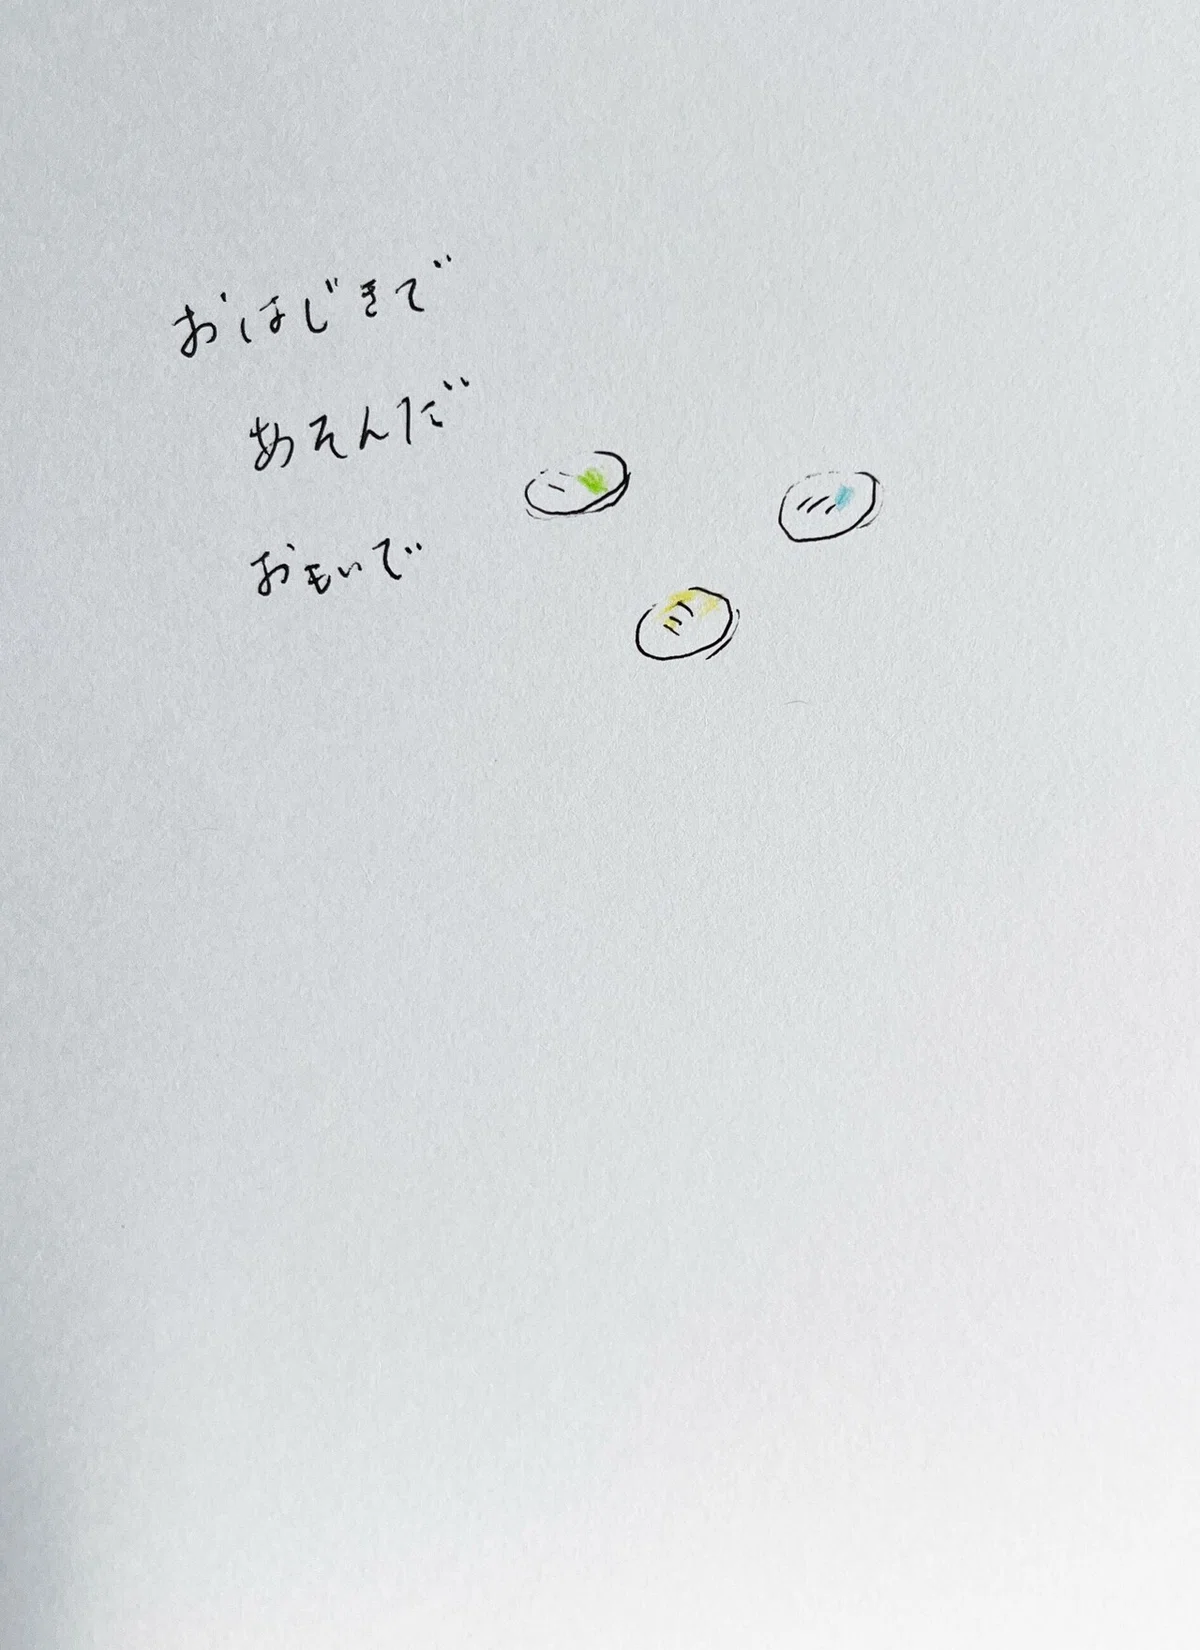 おはじきで
あそんだ
おもいで